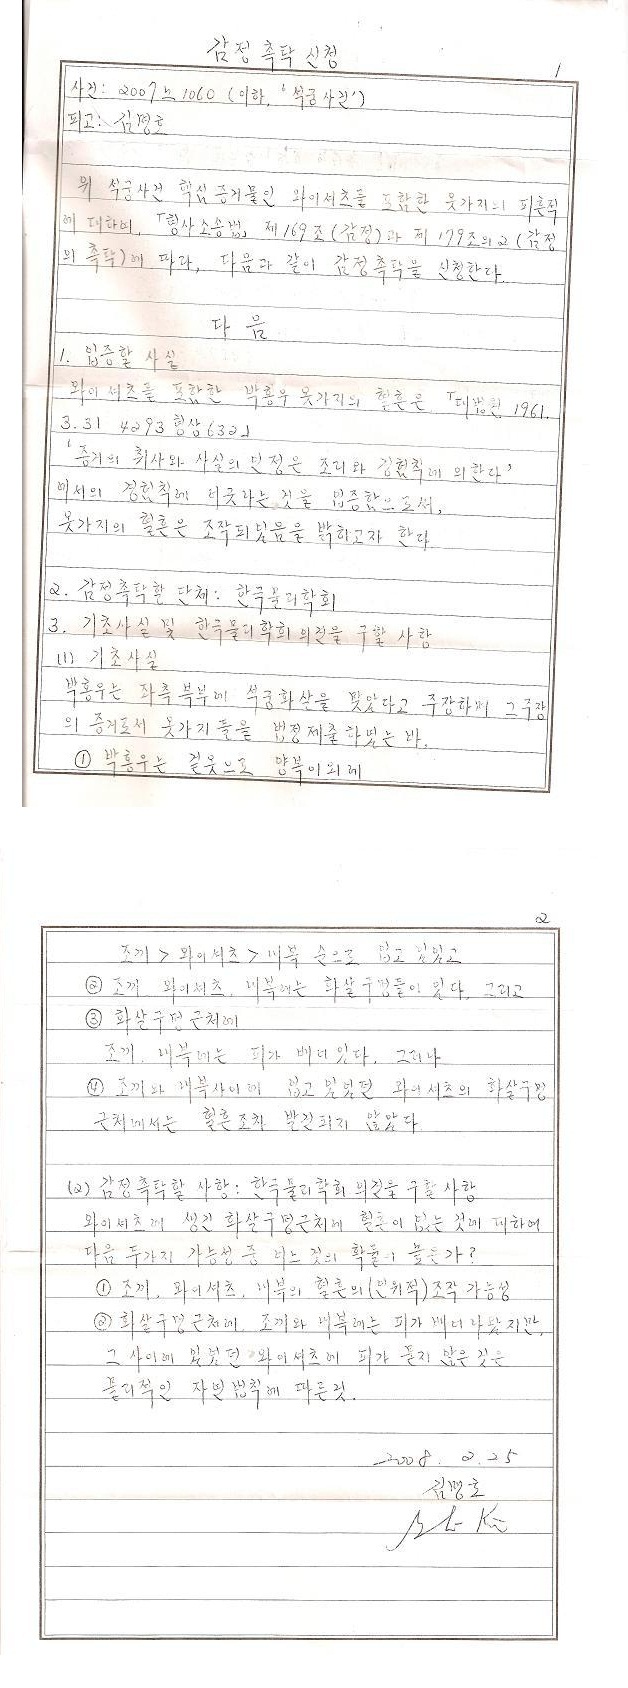 감정 촉탁 신청
1
사건: 2007노1060 (이하, '석궁사건')
피고: 김명호
위 석궁사건 핵심 증거물인 와이셔츠를 포함한 옷가지의 피흔적
에 대하여, 「형사소송법」 제169조(감정)과 제179조의2(감정
의 촉탁)에 따라, 다음과 같이 감정촉탁을 신청한다.
다 음
1. 입증할 사실
와이셔츠를 포함한 박홍우 옷가지의 혈흔은 「대법원 1961.
3.31 4293 형상 632」
'증거의 취사와 사실의 인정은 조리와 경험칙에 의한다'
에서의 경험칙에 어긋나는 것을 입증함으로써,
옷가지의 혈흔은 조작되었음을 밝히고자 한다
2. 감정촉탁할 단체: 한국물리학회
3. 기초사실 및 한국물리학회 의견을 구할 사항
(1) 기초사실
박홍우는 좌측 복부에 석궁화살을 맞았다고 주장하며 그 주장
의 증거로서 옷가지들을 법정제출하였는 바,
① 박홍우는 겉옷으로 양복이외에
2
조끼 > 와이셔츠 > 내복 순으로 입고 있었고
② 조끼, 와이셔츠, 내복에는 화살구멍들이 있다. 그리고
③ 화살구멍 근처에
조끼, 내복에는 피가 배어있다. 그러나
④ 조끼와 내복사이에 입고 있었던 와이셔츠의 화살구멍
근처에서는 혈흔조차 발견되지 않았다.
(2) 감정촉탁할 사항: 한국물리학회 의견을 구할 사항
와이셔츠에 생긴 화살구멍근처에 혈흔이 없는 것에 대하여
다음 두가지 가능성 중 어느 것의 확률이 높은가?
① 조끼, 와이셔츠, 내복의 혈흔의 (인위적)조작 가능성
② 화살구멍 근처에, 조끼와 내복에는 피가 배어나왔지만,
그 사이에 있었던 와이셔츠에 피가 묻지 않은 것은
물리적인 자연법칙에 따른 것.
2008. 2. 25
김명호